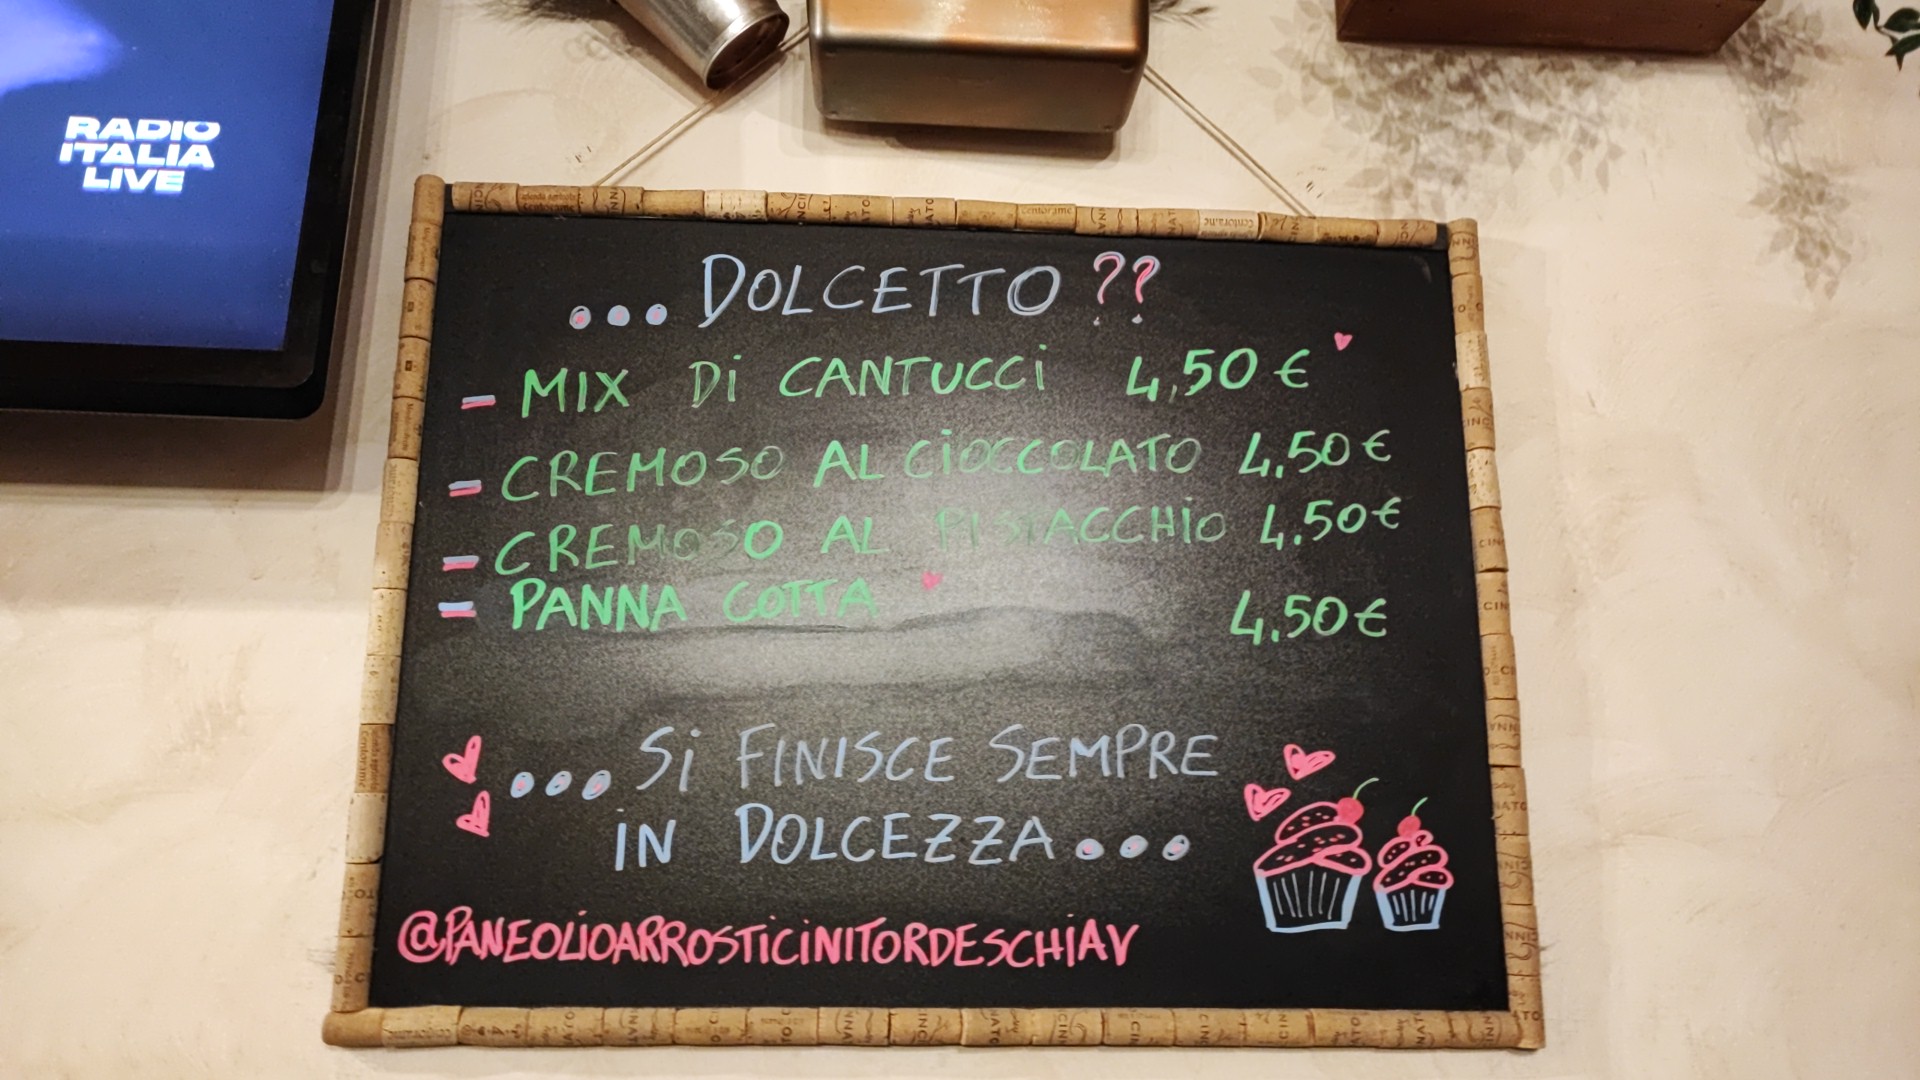 RADIO
ITALIA
LIVE
... DOLCETTO ??
- MIX Di CANTUCCi 4,50 €
- CREMOSO AL CiOCCOLATO 4.50 €
- CREMOSO AL PISTACCHiO 4.50 €
- PANNA COTTA 4.50 €
... Si FINISCE SEMPRE
iN DOLCEZZA ...
@PANEOLiOARROSTiCiNiTORDESCHiAV